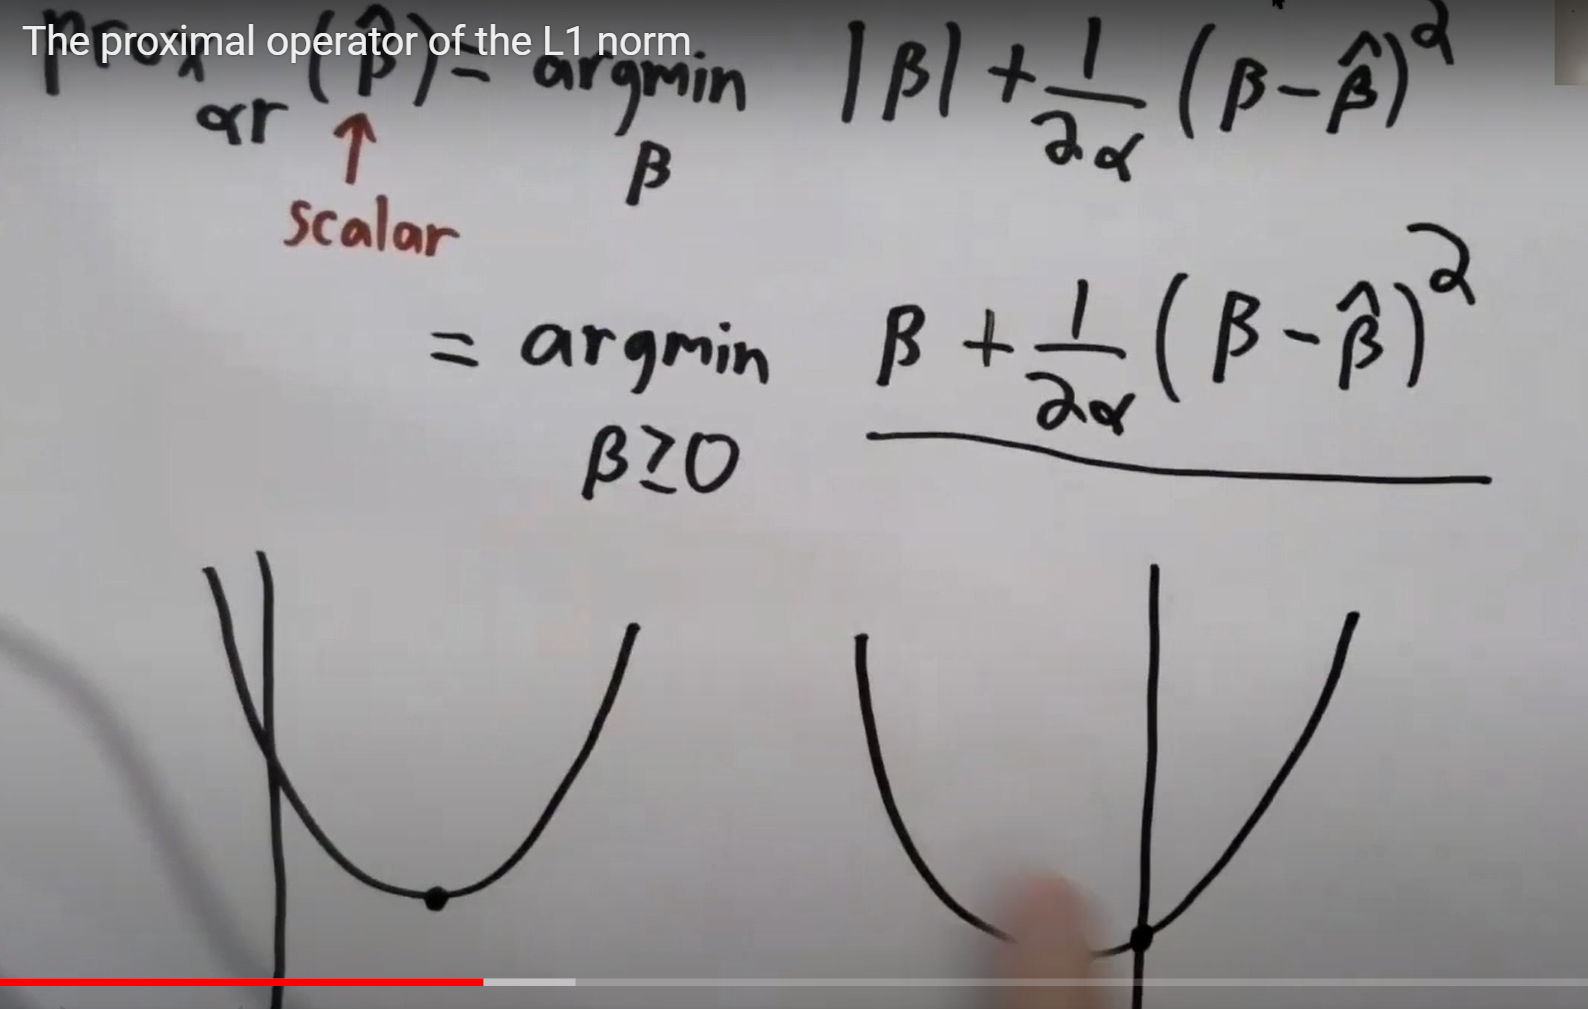 The proximal operator of the L1 norm
prox_{αr}(β̂) = argmin_β |β| + 1/2α (β - β̂)²
↑
scalar
= argmin_{β≥0} β + 1/2α (β - β̂)²